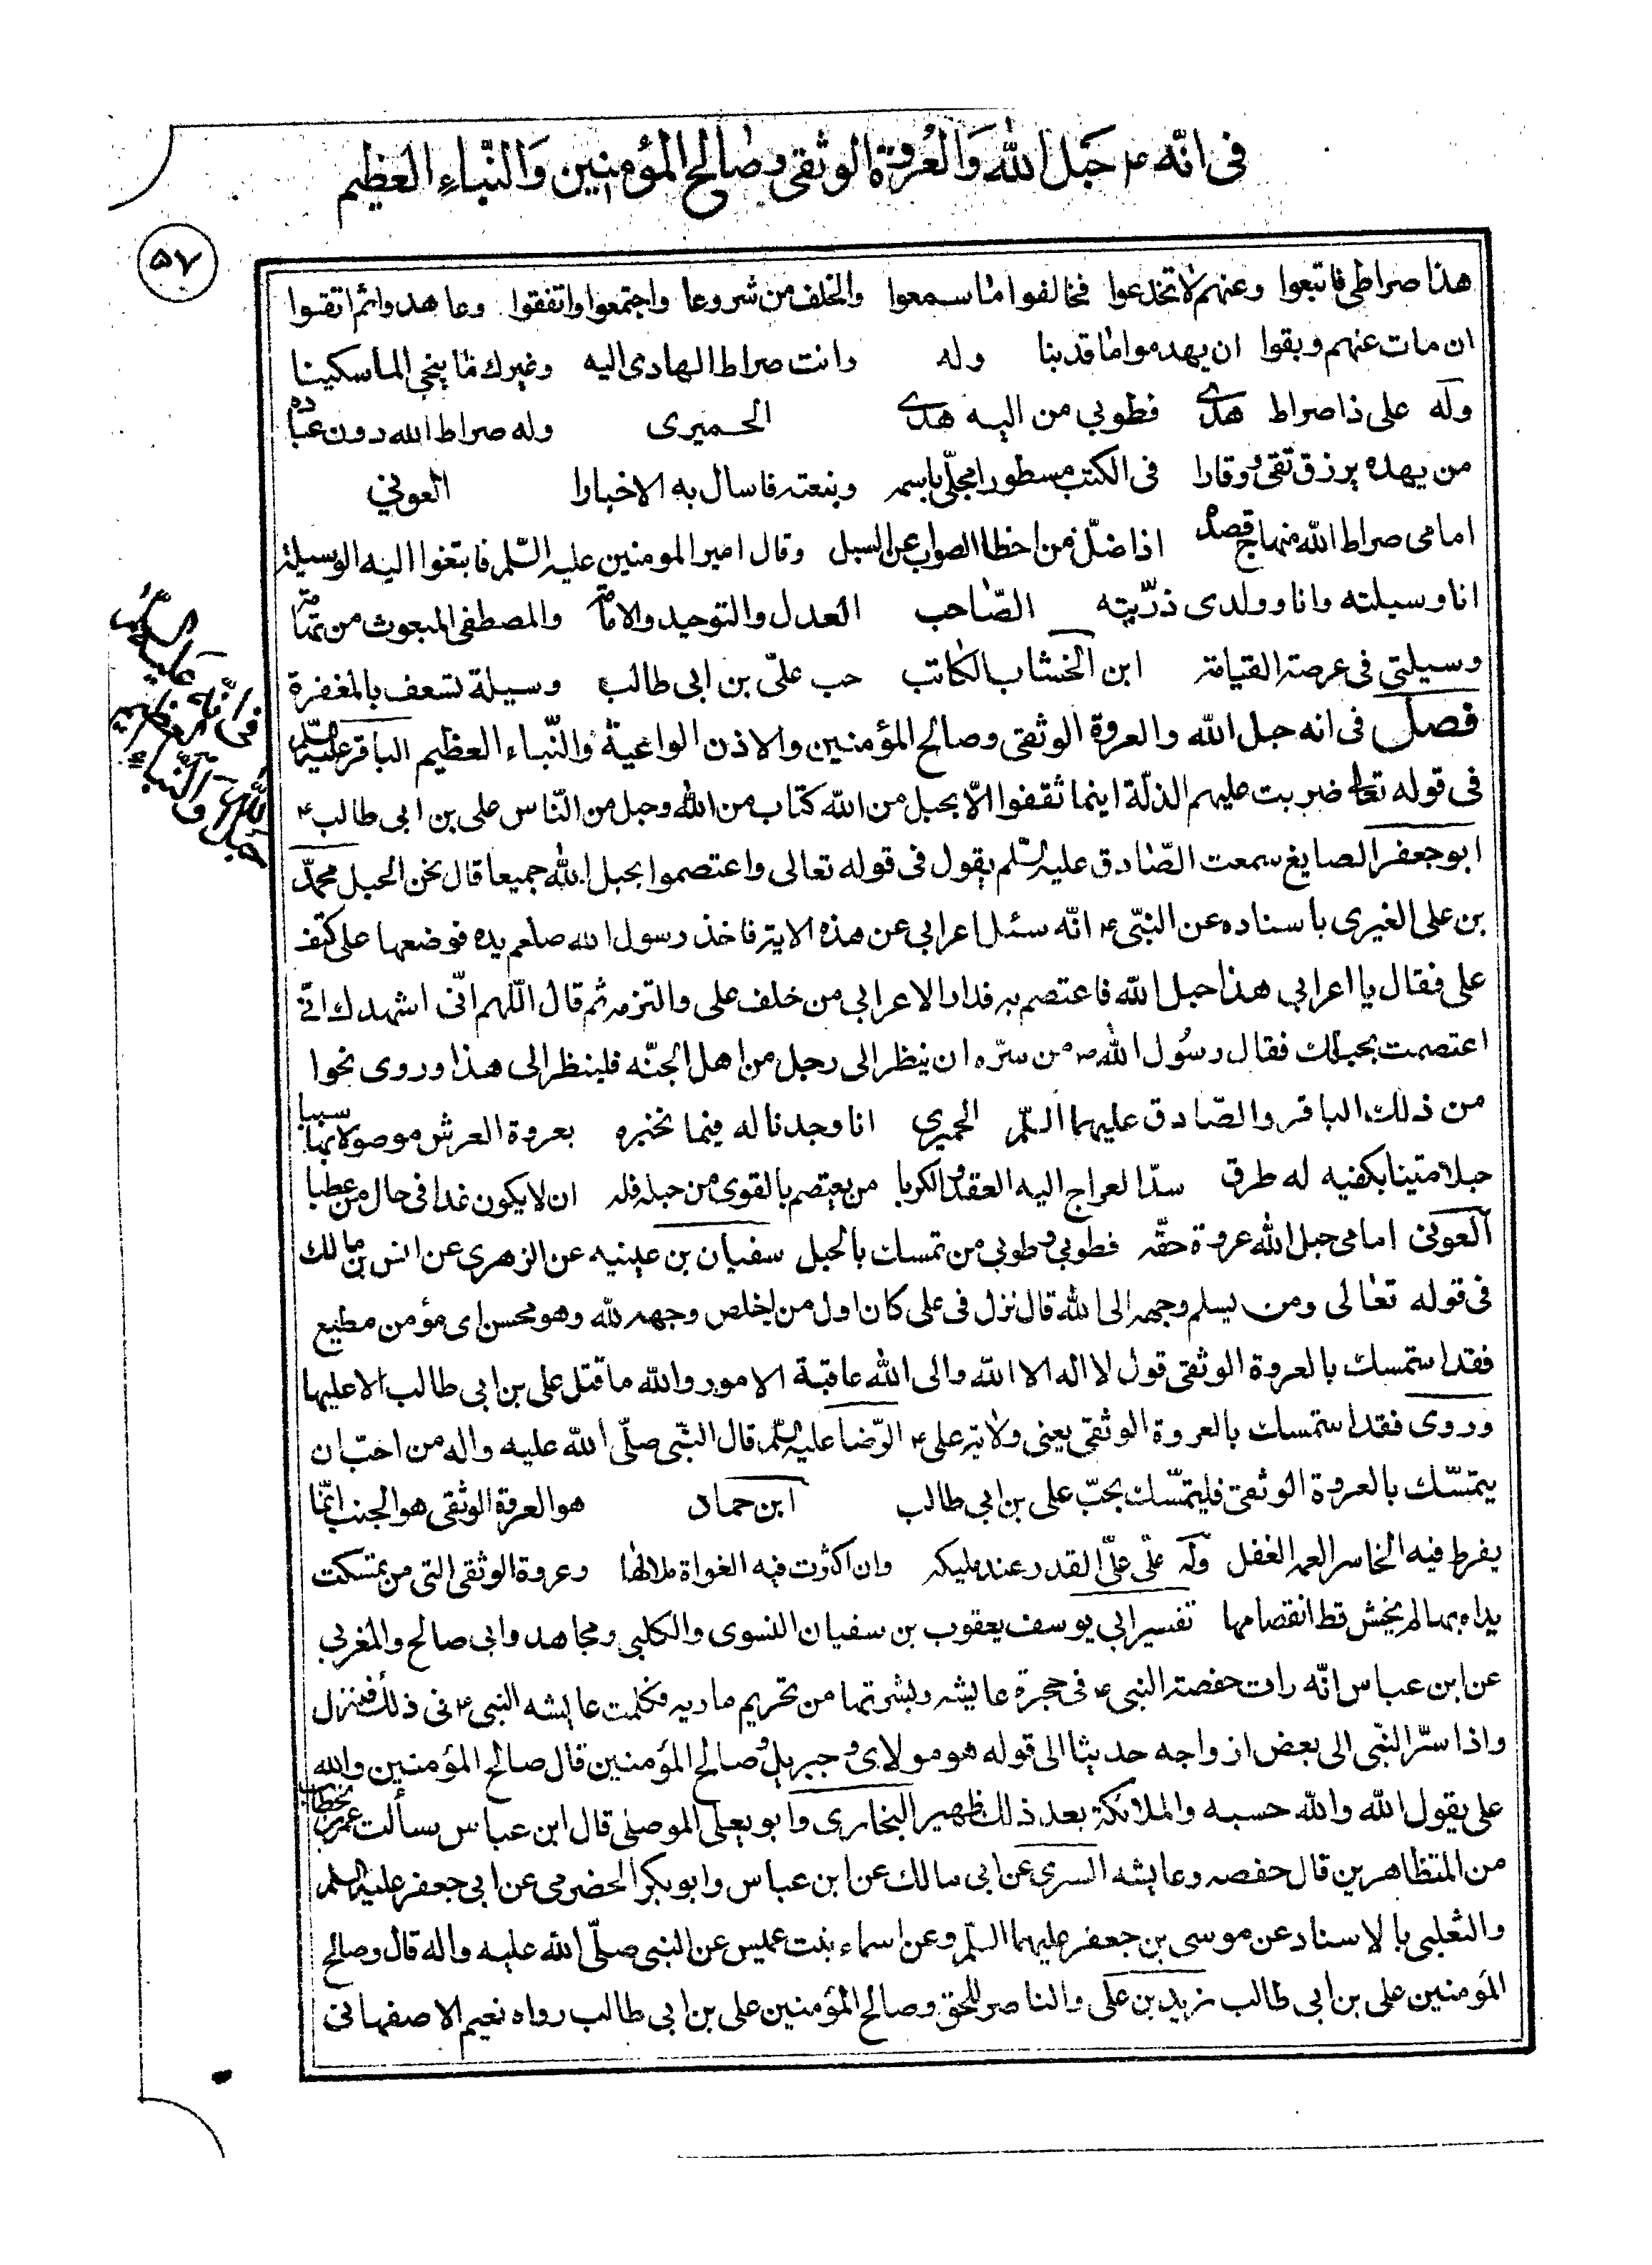 فى انّه ع حَبل الله وَالعُروة الوثقى وصالح المؤمنين وَالنّباءِ العظيم
۵۷
هذا صراطى فاتبعوا وعنهم لا تخدعوا فخالفوا ما سمعوا والخلف من شروعا واجتمعوا واتفقوا وعاهدوا ثم اتقوا
ان مات عنهم وبقوا ان يهدموا ما قد بنا وله وانت صراط الهادى اليه وغيرك ما ينجى الماسكينا
وله على ذا صراط هدى فطوبى من اليه هدى الحميرى وله صراط الله دون عباده
من يهده يرزق تقى ووقارا فى الكتب مسطورا مجلّى باسمه وبنعته فاسال به الاخبارا العونى
امامى صراط الله منهاج قصده اذا ضلّ من اخطا الصواب عن السبل وقال امير المومنين عليه السّلم فابتغوا اليه الوسيلة
انا وسيلته وانا وولدى ذرّيته الصّاحب العدل والتوحيد والامامة والمصطفى المبعوث من تهامة
وسيلتى فى عرصة القيامة ابن الخشاب الكاتب حب علىّ بن ابى طالب وسيلة تسعف بالمغفرة
فصل فى انه حبل الله والعروة الوثقى وصالح المؤمنين والاذن الواعية والنّباء العظيم الباقر عليه السلم
فى قوله تعالى ضربت عليهم الذلّة اينما ثقفوا الّا بحبل من الله كتاب من الله وحبل من النّاس على بن ابى طالب ع
ابو جعفر الصايغ سمعت الصّادق عليه السّلم يقول فى قوله تعالى واعتصموا بحبل الله جميعا قال نحن الحبل محمّد
بن على الغيرى باسناده عن النبّى ع انّه سئل اعرابى عن هذه الاية فاخذ رسول الله صلعم يده فوضعها على كتف
على فقال يا اعرابى هذا حبل الله فاعتصم به فدار الاعرابى من خلف على والتزمه ثم قال اللّهم انّى اشهدك انّى
اعتصمت بحبلك فقال رسُول الله ص من سرّه ان ينظر الى رجل من اهل الجنّه فلينظر الى هذا وروى نحوا
من ذلك الباقر والصّادق عليهما السّلم الحميرى انا وجدنا له فيما نخبره بعروة العرش موصولا بها سببا
حبلا متينا بكفيه له طرق سدّ العراج اليه العقد والكربا من يعتصم بالقوى من حبله فله ان لا يكون غدا فى حال من عطبا
العونى امامى حبل الله عروة حقّه فطوبى وطوبى من تمسك بالحبل سفيان بن عيينيه عن الزهرى عن انس بن مالك
فى قوله تعالى ومن يسلم وجهه الى الله قال نزل فى على كان اول من اخلص وجهه لله وهو محسن اى مؤمن مطيع
فقد استمسك بالعروة الوثقى قول لا اله الا الله والى الله عاقبة الامور والله ما قتل على بن ابى طالب الا عليها
وروى فقد استمسك بالعروة الوثقى يعنى ولاية على ع الرّضا عليه السلم قال النبّى صلّى الله عليه واله من احبّ ان
يتمسّك بالعروة الوثقى فليتمسّك بحبّ على بن ابى طالب ابن حماد هو العروة الوثقى هو الجنب انّما
يفرط فيه الخاسر العمه الغفل وله علىّ علىّ القدر عند مليكه وان اكثرت فيه الغواة ملالها وعروة الوثقى التى من تمسكت
يداه بها لم يخش قط انقصامها تفسير ابى يوسف يعقوب بن سفيان النسوى والكلبى ومجاهد وابى صالح والمغربى
عن ابن عباس انّه رات حفصة النبى ع فى حجرة عايشه وبشرتها من تحريم ماريه فكلمت عايشه النبى ع فى ذلك فينزل
واذا سرّ النّبى الى بعض ازواجه حديثا الى قوله هو مولاى وجبريل وصالح المؤمنين قال صالح المؤمنين والله
على يقول الله والله حسبه والملائكة بعد ذلك ظهير البخارى وابو يعلى الموصلى قال ابن عباس سألت عمر بن خطاب
من المتظاهرين قال حفصه وعايشه السرى عن ابى مالك عن ابن عباس وابو بكر الحضرمى عن ابى جعفر عليه السلم
والثعلبى بالاسناد عن موسى بن جعفر عليهما السلم وعن اسماء بنت عميس عن النبى صلّى الله عليه واله قال وصالح
المؤمنين على بن ابى طالب زيد بن على والناصر للحق وصالح المؤمنين على بن ابى طالب رواه نعيم الاصفهانى